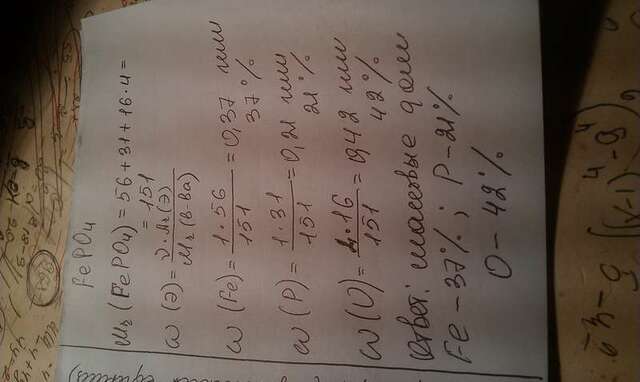 FePO4
Mr(FePO4) = 56 + 31 + 16·4 =
= 151
ω(Э) = ν·Ar(Э) / Mr(в-ва)
ω(Fe) = 1·56 / 151 = 0,37 или
37%
ω(P) = 1·31 / 151 = 0,21 или
21%
ω(O) = 4·16 / 151 = 0,42 или
42%
Ответ: массовые доли
Fe – 37%; P – 21%
O – 42%